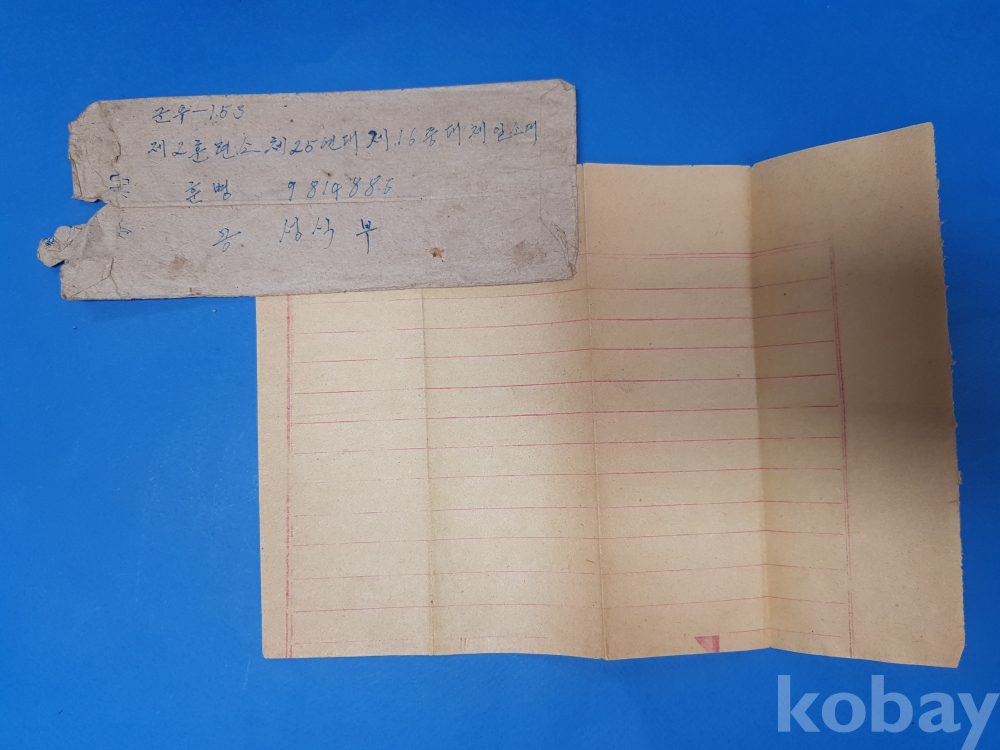 군우-153
제2훈련소 제25연대 제.16중대 제일소대
훈병 9814885
성식 부
kobay